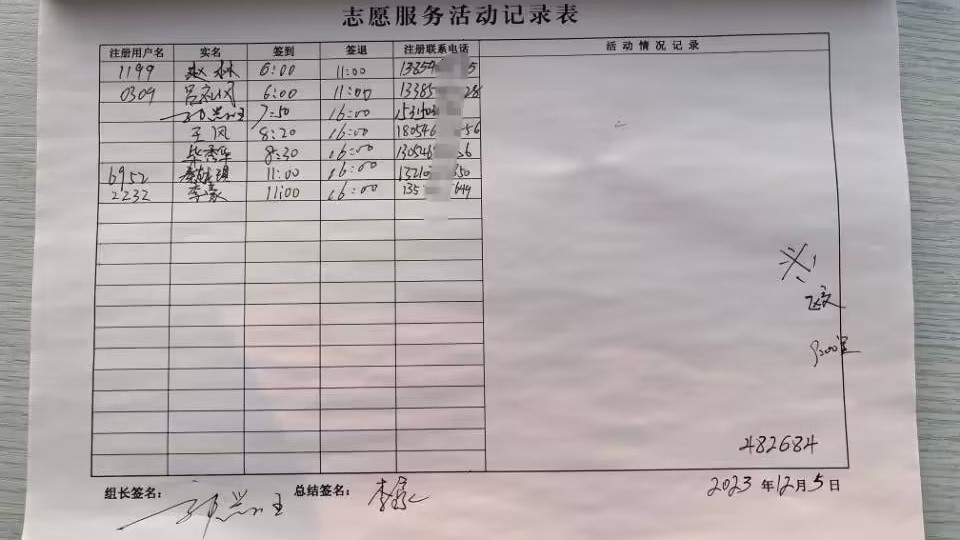 志愿服务活动记录表
注册用户名 实名 签到 签退 注册联系电话 活动情况记录
1199 赵林 6:00 11:00 13859 5
0309 6:00 11:00 13385 28
7:50 16:00
王风 8:20 16:00 180546 56
毕秀华 8:30 16:00 130546 56
6952 11:00 16:00 13210 650
2232 李豪 11:00 16:00 135 649
482684
组长签名： 总结签名：
2023 年 12 月 5 日